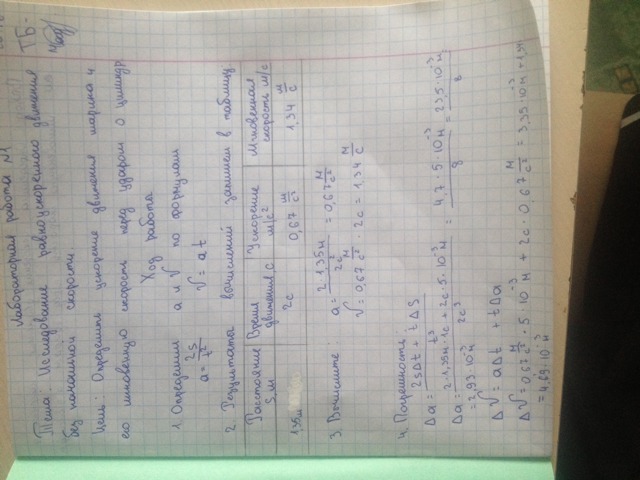 Лабораторная работа №1
ТБ-
Тема: Исследование равноускоренного движения
без начальной скорости.
Цель: Определить ускорение движения шарика и
его мгновенную скорость перед ударом о цилиндр
Ход работа
1. Определили a и v по формулам
a = 2S/t² v = at
2. Результаты вычислений запишем в таблицу:
Расстояние S, м | Время движения, с | Ускорение м/с² | Мгновенная скорость м/с
1,35м | 2с | 0,67 м/с² | 1,34 м/с
3. Вычислите: a = 2·1,35м/2с² = 0,67 м/с²
v = 0,67 м/с² · 2с = 1,34 м/с
4. Погрешность:
Δa = 2SΔt + tΔS / t³
Δa = 2·1,35м·1с + 2с·5·10⁻³ / 2с³ = 4,7·5·10⁻³м / 8 = 23,5·10⁻³м / 8
= 2,93·10⁻³м
Δv = aΔt + tΔa
Δv = 0,67 м/с² · 5·10⁻³ м + 2с · 0,67 м/с² = 3,35·10⁻³м + 1,34
= 4,69·10⁻³м